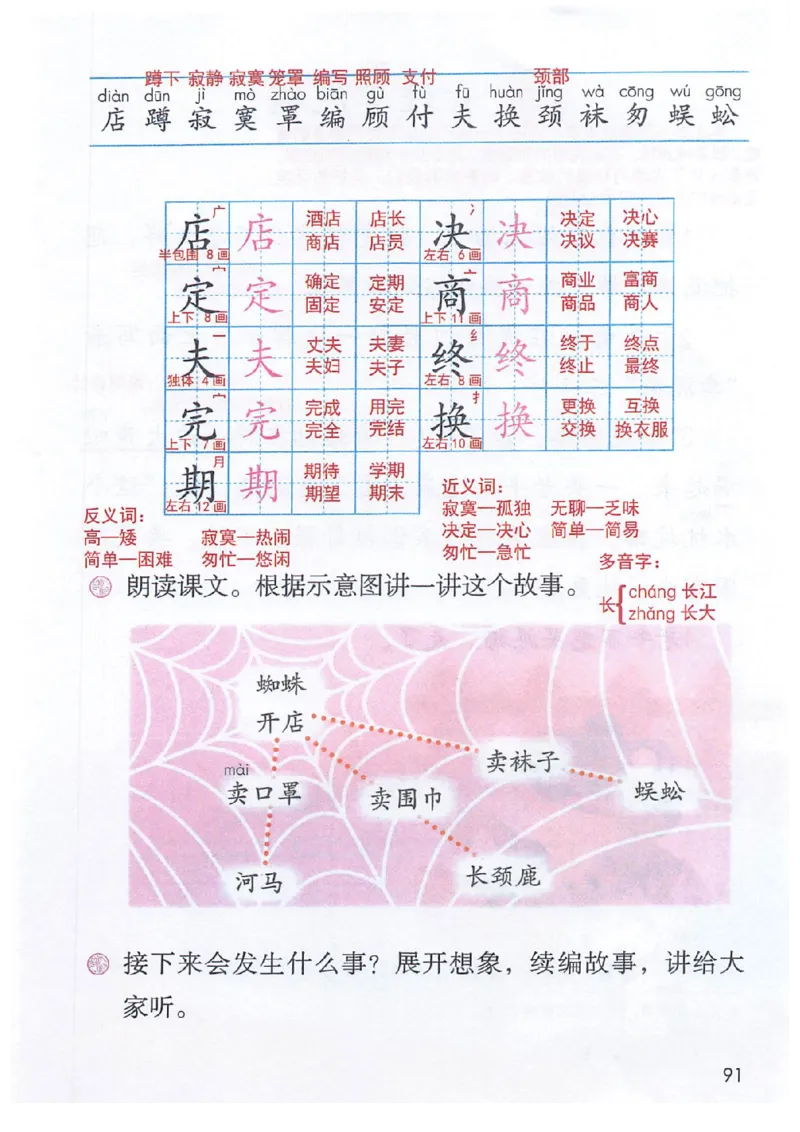 蹲下 寂静 寂寞 笼罩 编写 照顾 支付 颈部
diàn dūn jì mò zhào biān gù fù fū huàn jǐng wà cōng wú gōng
店 蹲 寂 寞 罩 编 顾 付 夫 换 颈 袜 匆 蜈 蚣
店 广 半包围 8画 店 酒店 店长 商店 店员
决 冫 左右 6画 决 决定 决心 决议 决赛
定 宀 上下 8画 定 确定 定期 固定 安定
商 亠 上下 11画 商 商业 富商 商品 商人
夫 一 独体 4画 夫 丈夫 夫妻 夫妇 夫子
终 纟 左右 8画 终 终于 终点 终止 最终
完 宀 上下 7画 完 完成 用完 完全 完结
换 扌 左右 10画 换 更换 互换 交换 换衣服
期 月 左右 12画 期 期待 学期 期望 期末
反义词:
高—矮 寂寞—热闹
简单—困难 匆忙—悠闲
近义词:
寂寞—孤独 无聊—乏味
决定—决心 简单—简易
匆忙—急忙
多音字:
长 { cháng 长江
zhǎng 长大
朗读课文。根据示意图讲一讲这个故事。
蜘蛛
开店
mài
卖口罩
卖围巾
卖袜子
蜈蚣
河马
长颈鹿
接下来会发生什么事?展开想象,续编故事,讲给大
家听。
91